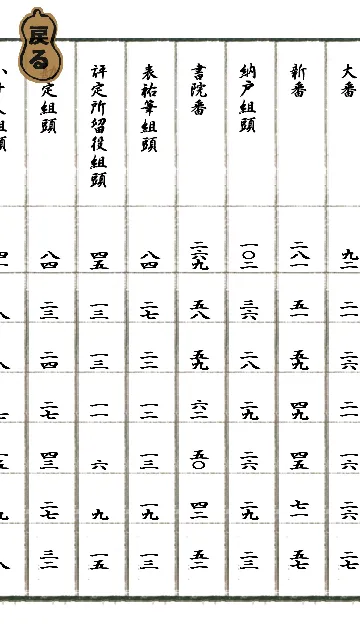 戻る
大番
九二
二一
二六
二一
一六
二六
二七
新番
二八一
五一
五九
四九
四五
七一
五七
納戸組頭
一〇二
三六
二八
二九
二六
二九
二三
書院番
二六九
五八
五九
六二
五〇
四二
五二
表祐筆組頭
八四
二七
二二
一二
一三
一九
一三
評定所留役組頭
四五
一三
一三
一一
六
九
一五
定組頭
八四
二三
二四
二七
四三
二七
三二